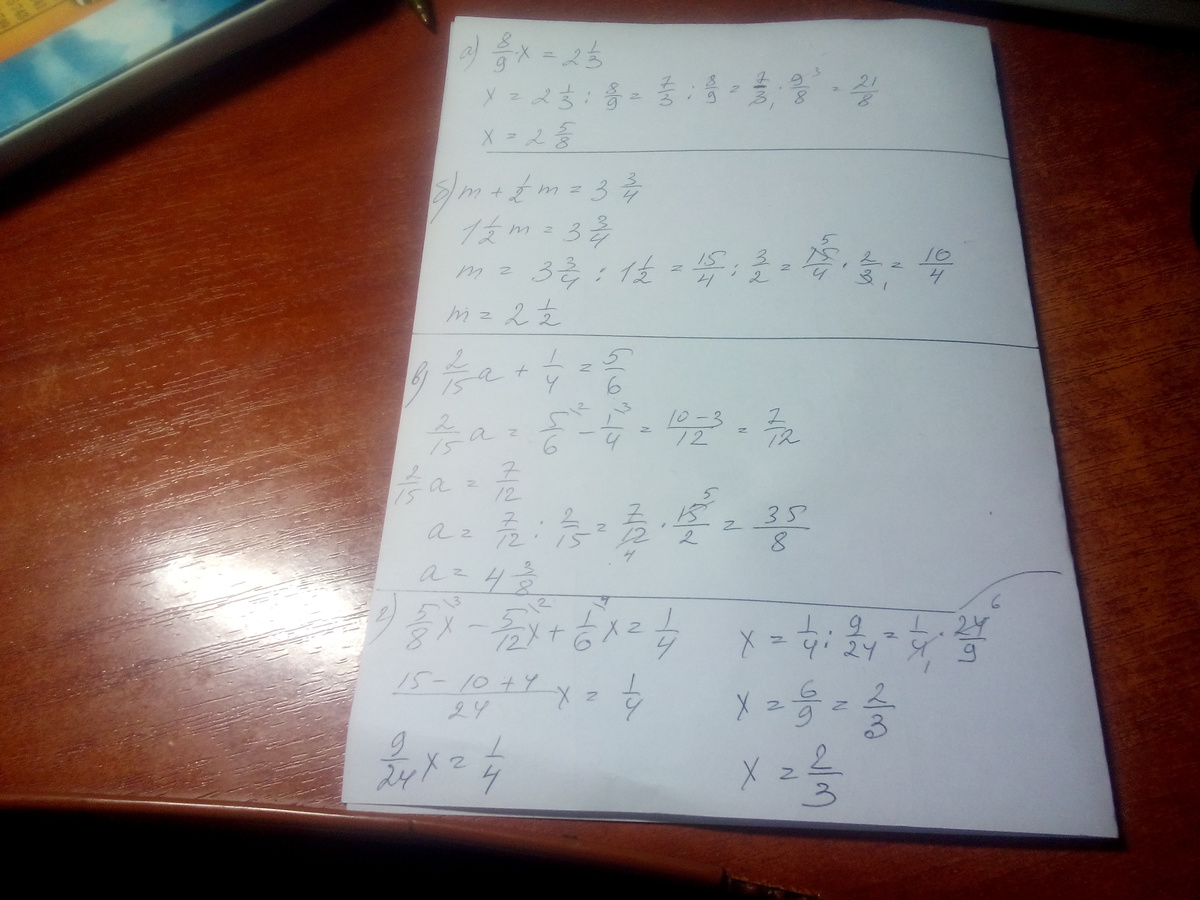 а) 8/9 · x = 2 1/3
x = 2 1/3 : 8/9 = 7/3 : 8/9 = 7/3₁ · 9³/8 = 21/8
x = 2 5/8
б) m + 1/2 m = 3 3/4
1 1/2 m = 3 3/4
m = 3 3/4 : 1 1/2 = 15/4 : 3/2 = 15⁵/4 · 2/3₁ = 10/4
m = 2 1/2
в) 2/15 a + 1/4 = 5/6
2/15 a = 5/6 \2 - 1/4 \3 = 10-3/12 = 7/12
2/15 a = 7/12
a = 7/12 : 2/15 = 7/12₄ · 15⁵/2 = 35/8
a = 4 3/8
г) 5/8 \3 x - 5/12 \2 x + 1/6 \4 x = 1/4
15 - 10 + 4/24 x = 1/4
9/24 x = 1/4
x = 1/4 : 9/24 = 1/4₁ · 24⁶/9
x = 6/9 = 2/3
x = 2/3